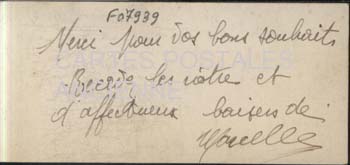 F07939
Merci pour vos bons souhaits
CARTES POSTALES
Recevez les nôtres et
d'affectueux baisers de
Marcelle